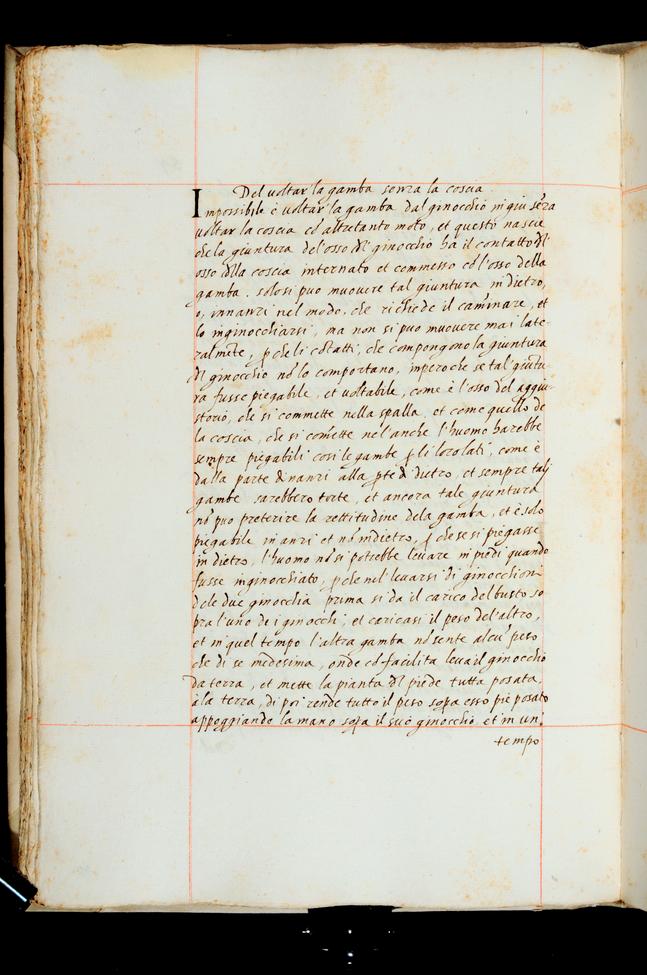 Del voltar la gamba senza la coscia.
Impossibile è voltar la gamba dal ginocchio in giu sẽza
voltar la coscia cõ altretanto moto, et questo nascie
che la giuntura del'osso dl' ginocchio ha il contatto dl'
osso della coscia internato et commesso cõ l'osso della
gamba. solo si puo muovere tal giuntura in dietro,
o, innanzi nel modo, che richiede il caminare, et
lo inginocchiarsi, ma non si puo muovere mai late-
ralmẽte, p che li cõtatti, che compongono la giuntura
dl ginocchio nõ lo comportano, imperoche se tal giũtu-
ra fusse piegabile, et voltabile, come è l'osso del aggiu-
storio, che si commette nella spalla, et come quello de
la coscia, che si comette nel'anche l'huomo harebbe
sempre piegabili cosi le gambe p li loro lati, come è
dalla parte dinanzi alla pte di dietro, et sempre tali
gambe sarebbero torte, et ancora tale giuntura
nõ puo preterire la rettitudine dela gamba, et è solo
piegabile inanzi et nõ indietro, p che se si piegasse
in dietro, l'huomo nõ si potrebbe levare in piedi quando
fusse inginocchiato, p che nel levarsi di ginocchioni
dele due ginocchia prima si da il carico del busto so
pra l'uno de i ginocchi, et caricasi il peso del'altro,
et in quel tempo l'altra gamba nõ sente alcũ peso
che di se medesima, onde cõ facilita leva il ginocchio
da terra, et mette la pianta dl piede tutta posata,
à la terra, di poi rende tutto il peso sopa esso piè posato
appoggiando la mano sopa il suo ginocchio et in un,
tempo